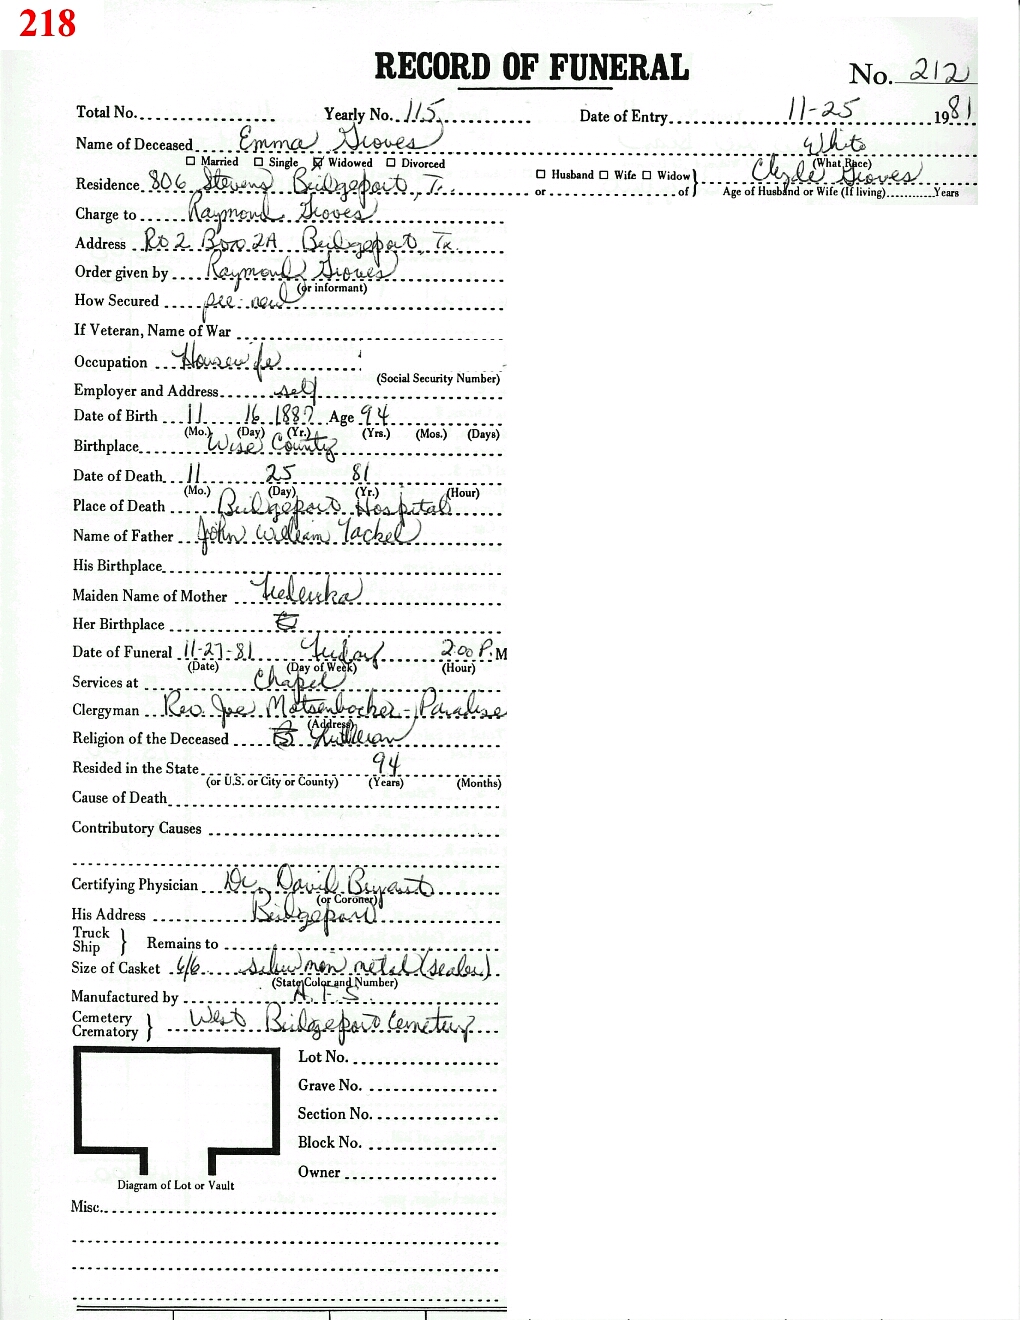 218
RECORD OF FUNERAL
No. 212
Total No. Yearly No. 115 Date of Entry 11-25 1981
Name of Deceased Emma Groves White
☐ Married ☐ Single ☒ Widowed ☐ Divorced (What Race)
Residence 806 Stevens Bridgeport, Tx. ☐ Husband ☐ Wife ☐ Widow Clyde Groves
or of } Age of Husband or Wife (If living) Years
Charge to Raymond Groves
Address Rt 2 Box 2A Bridgeport, Tx.
Order given by Raymond Groves
(or informant)
How Secured pre-need
If Veteran, Name of War
Occupation Housewife
(Social Security Number)
Employer and Address self
Date of Birth 11 16 1887 Age 94
(Mo.) (Day) (Yr.) (Yrs.) (Mos.) (Days)
Birthplace Wise County
Date of Death 11 25 81
(Mo.) (Day) (Yr.) (Hour)
Place of Death Bridgeport Hospital
Name of Father John William
His Birthplace
Maiden Name of Mother
Her Birthplace
Date of Funeral 11-27-81 Friday 2:00 P.M
(Date) (Day of Week) (Hour)
Services at Chapel
Clergyman Rev. Joe Motsenbocker - Paradise
(Address)
Religion of the Deceased Lutheran
Resided in the State 94
(or U.S. or City or County) (Years) (Months)
Cause of Death
Contributory Causes
Certifying Physician Dr. David Bryant
(or Coroner)
His Address Bridgeport
Truck
Ship } Remains to
Size of Casket 6/6 silver mon metal (sealer)
(State Color and Number)
Manufactured by H.F.S.
Cemetery
Crematory } West Bridgeport Cemetery
Lot No.
Grave No.
Section No.
Block No.
Owner
Diagram of Lot or Vault
Misc.